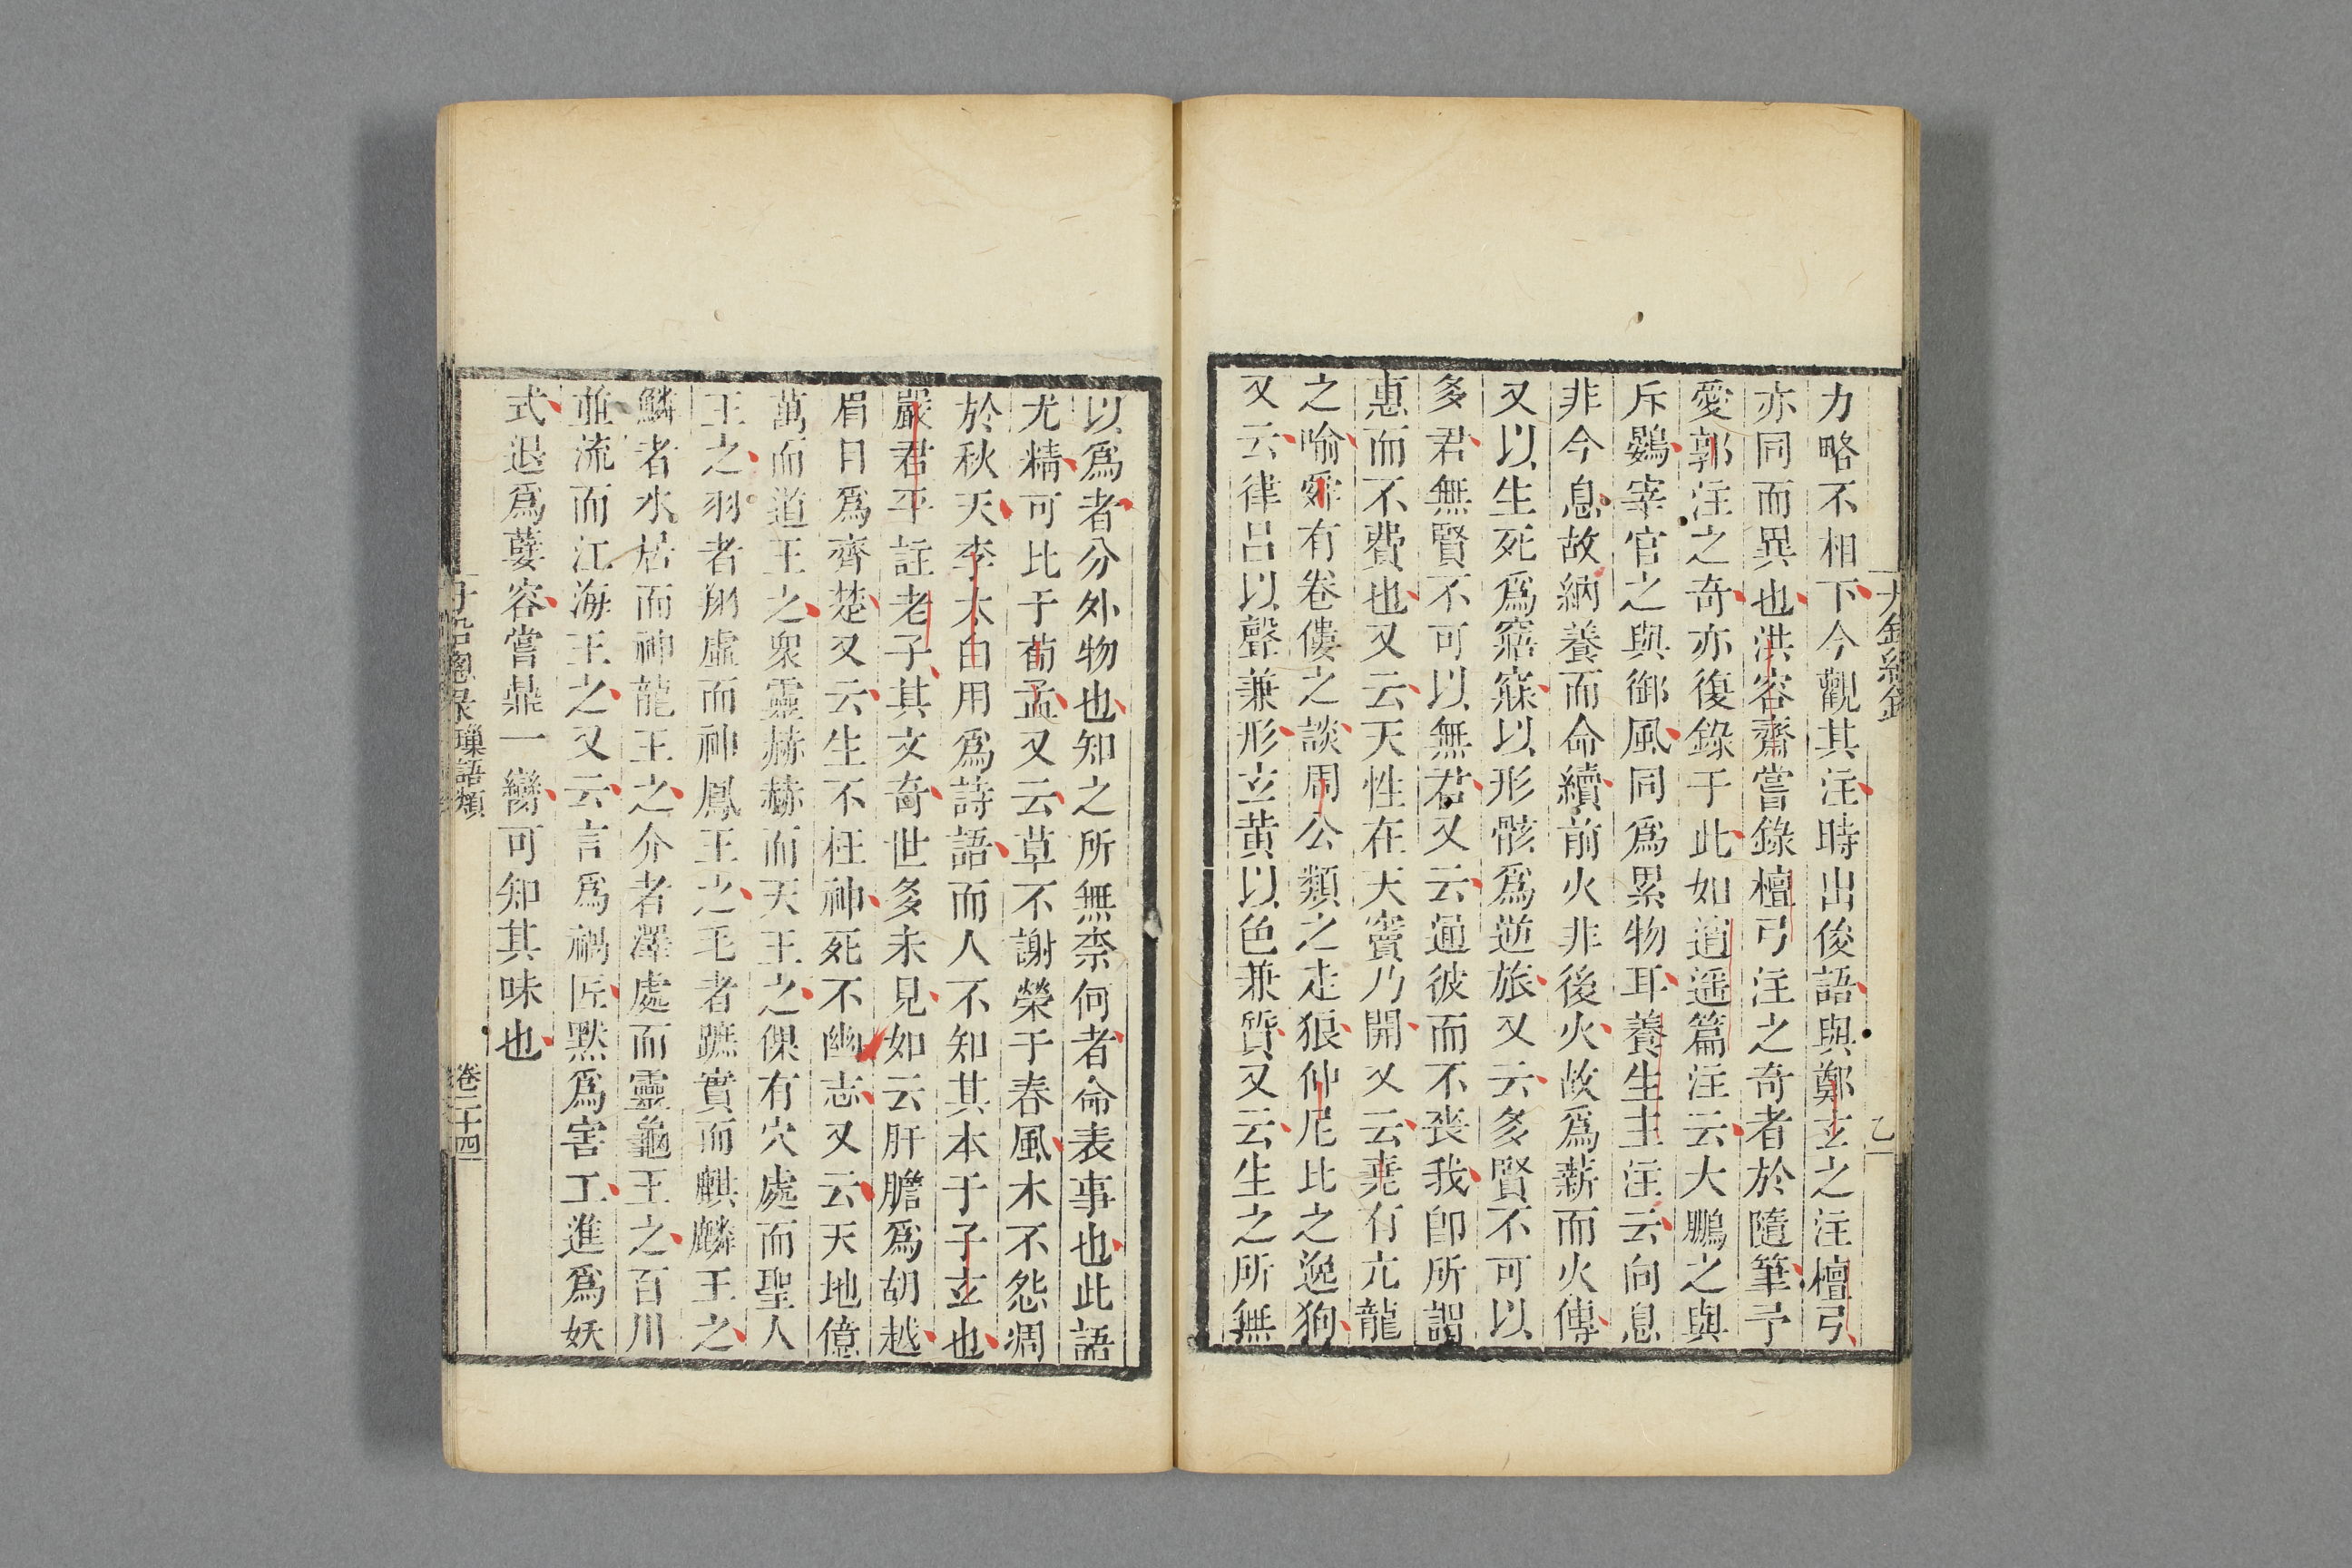 力略不相下今觀其注時出俊語與鄭玄之注檀弓
亦同而異也洪容齋嘗錄檀弓注之奇者於隨筆予
愛郭注之奇亦復錄于此如逍遥篇注云大鵬之與
斥鷃宰官之與御風同爲累物耳養生主注云向息
非今息故納養而命續前火非後火故爲薪而火傳
又以生死爲寤寐以形骸爲逆旅又云多賢不可以
多君無賢不可以無君又云通彼而不喪我即所謂
惠而不費也又云天性在天竇乃開又云堯有亢龍
之喻舜有卷僂之談周公類之走狼仲尼比之逸狗
又云律呂以聲兼形玄黄以色兼質又云生之所無
以爲者分外物也知之所無柰何者命表事也此語
尤精可比于荀孟又云草不謝榮于春風木不怨凋
於秋天李太白用爲詩語而人不知其本于子玄也
嚴君平註老子其文奇世多未見如云肝膽爲胡越
眉目爲齊楚又云生不枉神死不幽志又云天地億
萬而道王之衆靈赫赫而天王之倮有穴處而聖人
王之羽者翔虛而神鳳王之毛者蹠實而麒麟王之
鱗者水居而神龍王之介者澤處而靈龜王之百川
並流而江海王之又云言爲禍匠黙爲害工進爲妖
式退爲孽容嘗鼎一臠可知其味也
璅語類
卷二十四